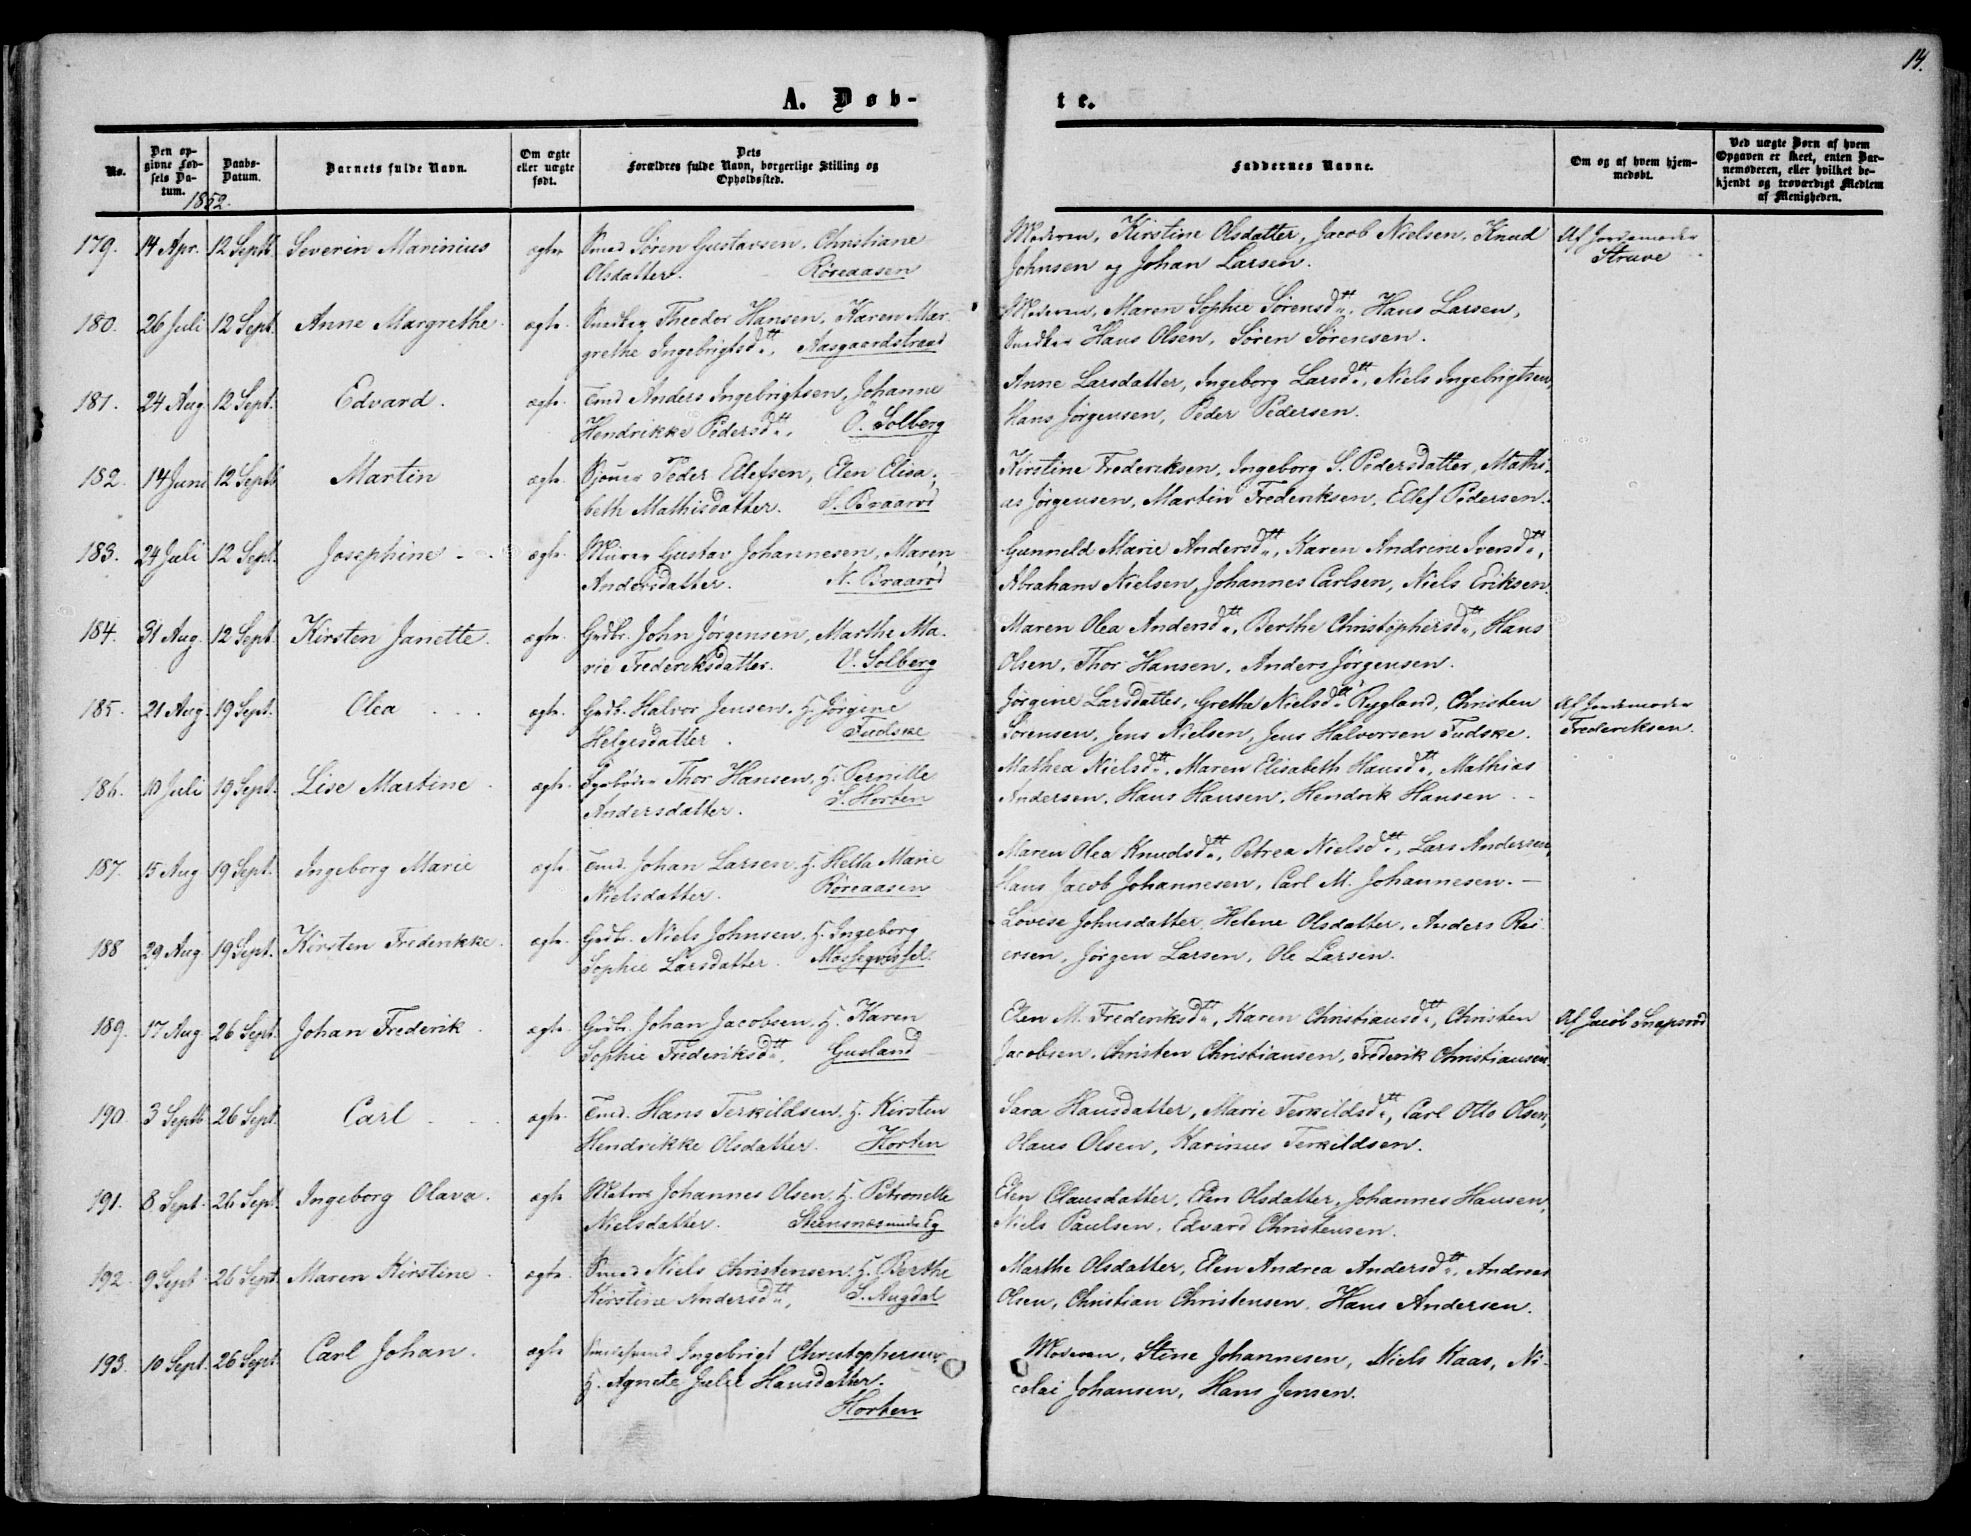 14.
A. Døb-
te.
No.
Den op-
givne Fød-
sels Da-
tum.
Daabs-
Datum.
Barnets fulde Navn.
Om ægte
eller uægte
født.
Dets
Forældres fulde Navn, borgerlige Stilling og
Opholdssted.
Faddernes Navne.
Om og af hvem hjem-
medøbt.
Ved uægte Børn af hvem
Opgaven er skeet, enten Bar-
nemoderen, eller hvilket be-
kjendt og troværdigt Medlem
af Menigheden.
1852.
179. 14 Apr. 12 Septb Severin Marinius ægte Smed Søren Gustavsen, Christiane
Olsdatter. Røreaasen
Moderen, Kirstine Olsdatter, Jacob Nielsen, Knud
Johnsen og Johan Larsen.
Af Jordemoder
Struve
180. 26 Juli 12 Sept. Anne Margrethe ægte. Snedker Theodor Hansen, Karen Mar-
grethe Ingebrigtsdtt., Aasgaardstrand
Moderen, Maren Sophie Sørensdtt., Hans Larsen,
Snedker Hans Olsen, Søren Sørensen.
181. 24 Aug 12 Sept. Edvard. ægte. Tmd Anders Ingebrigtsen, Johanne
Hendrikke Pedersdtt., Ø. Solberg
Anne Larsdatter, Ingeborg Larsdtt., Niels Ingebrigtsen,
Hans Jørgensen, Peder Pedersen.
182. 14 Juni 12 Septb Martin ægte. Peder Ellefsen, Elen Elisa-
beth Mathisdatter. S. Braarød
Kirstine Frederiksen, Ingeborg S. Pedersdatter, Mathi-
as Jørgensen, Martin Frederiksen, Ellef Pedersen.
183. 24 Juli 12 Sept. Josephine ægte. Murer Gustav Johannesen, Maren
Andersdatter. N. Braarød
Gunneld Marie Andersdtt., Karen Andrine Iversdtt.,
Abraham Nielsen, Johannes Carlsen, Niels Eriksen
184. 31 Aug. 12 Sept. Kirsten Janette. ægte. Grdbr. John Jørgensen, Marthe Ma-
rie Frederiksdatter. V. Solberg
Maren Olea Andersdtt., Berthe Christophersdtt., Hans
Olsen, Thor Hansen, Anders Jørgensen.
185. 21 Aug. 19 Sept. Olea ægte. Grdb. Halvor Jensen, H. Jørgine
Helgesdatter. Fudske
Jørgine Larsdatter, Grethe Nielsdtt. Rygland, Christen
Sørensen, Jens Nielsen, Jens Halvorsen Fudske.
Af Jordemoder
Frederiksen.
186. 10 Juli 19 Sept. Lise Martine ægte. Thor Hansen, H. Pernille
Andersdatter. S. Horten
Mathea Nielsdtt., Maren Elisabeth Hansdtt., Mathias
Andersen, Hans Hansen, Hendrik Hansen
187. 15 Aug 19 Sept. Ingeborg Marie ægte. Tmd. Johan Larsen, H. Helta Marie
Nielsdatter. Røreaasen
Maren Olea Knudsdtt., Petrea Nielsdtt., Lars Andersen,
Hans Jacob Johannesen, Carl M. Johannesen.
188 29 Aug 19 Sept. Kirsten Frederikke. ægte. Grdbr. Niels Johnsen, H. Ingeborg
Sophie Larsdatter.
Lovise Johnsdatter, Helene Olsdatter, Anders Rei-
ersen, Jørgen Larsen, Ole Larsen.
189. 17 Aug 26 Sept. Johan Frederik. ægte. Grdbr. Johan Jacobsen, H. Karen
Sophie Frederiksdtt., Gusland
Elen M. Frederiksdtt., Karen Christiansdtt., Christen
Jacobsen, Christen Christiansen, Frederik Christiansen.
Af Jacob Snapsrød
190. 3 Septb 26 Sept. Carl ægte. Tmd. Hans Terkildsen, H. Kirsten
Hendrikke Olsdatter. Horten
Sara Hansdatter, Marie Terkildsdtt., Carl Otto Olsen,
Olaus Olsen, Karinus Terkildsen.
191. 8 Sept. 26 Sept. Ingeborg Olava. ægte Matros Johannes Olsen, H. Petronelle
Nielsdatter.
Elen Clausdatter, Elen Olsdatter, Johannes Hansen,
Niels Paulsen, Edvard Christensen.
192. 9 Sept 26 Sept. Maren Kirstine. ægte. Smed Niels Christensen, H. Berthe
Kirstine Andersdtt., S. Augdal
Marthe Olsdatter, Elen Andrea Andersdtt., Andreas
Olsen, Christian Christensen, Hans Andersen.
193. 10 Sept. 26 Sept. Carl Johan. ægte Ingebrigt Christophersen,
H. Agnete Julie Hansdatter.
Horten
Moderen, Stine Johannesen, Niels Kaas, Ni-
colai Johansen, Hans Jensen.